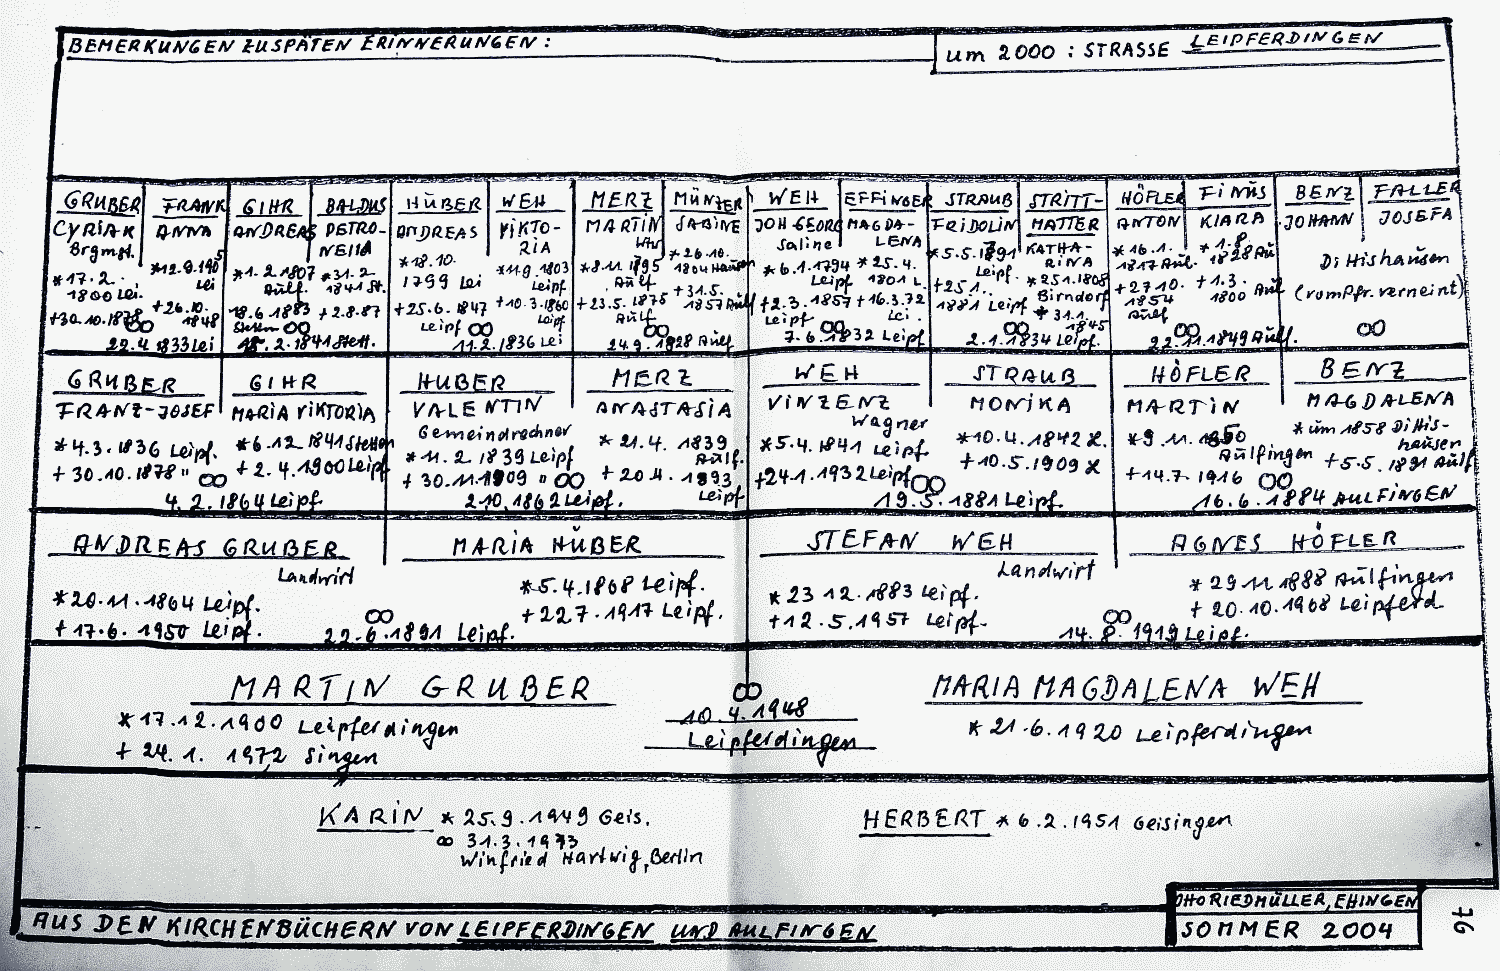 BEMERKUNGEN ZU SPÄTEN ERINNERUNGEN:
um 2000 : STRASSE LEIPFERDINGEN
GRUBER
CYRIAK
Brgmst.
*17.2.
1800 Lei.
+30.10.1878
FRANK
ANNA
*12.9.1905
Lei
+26.10.
1848
∞
22.4.1833 Lei
GIHR
ANDREAS
*1.2.1807
Aulf.
18.6.1883
Stetten
BALDUS
PETRO-
NELLA
*31.2.
1841 St.
+2.8.87
∞
15.2.1841 Stett.
HUBER
ANDREAS
*18.10.
1799 Lei
+25.6.1847
Leipf
WEH
VIKTO-
RIA
*11.9.1803
Leipf
+10.3.1860
Leipf
∞
11.2.1836 Lei
MERZ
MARTIN
Uhr
*8.11.1795
Aulf
+23.5.1875
Aulf
MÜNZER
SABINE
*26.10.
1804 Hausen
+31.5.
1857 Aulf
∞
24.9.1828 Aulf
WEH
JOH GEORG
Saline
*6.1.1794
Leipf
+2.3.1857
Leipf
EFFINGER
MAGDA-
LENA
*25.4.
1801 L.
+16.3.72
Lei.
∞
7.6.1832 Leipf
STRAUB
FRIDOLIN
*5.5.1891
Leipf.
+25.1.
1881 Leipf
STRITT-
MATTER
KATHA-
RINA
*25.1.1808
Birndorf
*31.1.
1845
∞
2.1.1834 Leipf.
HÖFLER
ANTON
*16.1.
1817 Aul.
+27.10.
1854
Aulf
FINUS
KLARA
*1.8.
1828 Au
+1.3.
1800 Aul
∞
22.11.1849 Aulf.
BENZ
JOHANN
FALLER
JOSEFA
Dittishausen
(vom Pfr. verneint)
∞
GRUBER
FRANZ-JOSEF
*4.3.1836 Leipf.
+30.10.1878 "
GIHR
MARIA VIKTORIA
*6.12.1841 Stetten
+2.4.1900 Leipf
∞
4.2.1864 Leipf.
HUBER
VALENTIN
Gemeindrechner
*11.2.1839 Leipf
+30.11.1909 "
MERZ
ANASTASIA
*21.4.1839
Aulf.
+20.4.1893
Leipf
∞
2.10.1862 Leipf.
WEH
VINZENZ
Wagner
*5.4.1841 Leipf
+24.1.1932 Leipf
STRAUB
MONIKA
*10.4.1842 L.
+10.5.1909 L
∞
19.5.1881 Leipf.
HÖFLER
MARTIN
*9.11.1850
Aulfingen
+14.7.1916
BENZ
MAGDALENA
*um 1858 Dittis-
hausen
+5.5.1891 Aulf
∞
16.6.1884 AULFINGEN
ANDREAS GRUBER
Landwirt
*20.11.1864 Leipf.
+17.6.1950 Leipf.
MARIA HUBER
*5.4.1868 Leipf.
+22.7.1917 Leipf.
∞
22.6.1891 Leipf.
STEFAN WEH
Landwirt
*23 12.1883 Leipf.
+12.5.1957 Leipf.
AGNES HÖFLER
*29 11.1888 Aulfingen
+20.10.1968 Leipferd.
∞
14.8.1919 Leipf.
MARTIN GRUBER
*17.12.1900 Leipferdingen
+24.1.1972 Singen
∞
10.4.1948
Leipferdingen
MARIA MAGDALENA WEH
*21.6.1920 Leipferdingen
KARIN *25.9.1949 Geis.
∞ 31.3.1973
Winfried Hartwig, Berlin
HERBERT *6.2.1951 Geisingen
AUS DEN KIRCHENBÜCHERN VON LEIPFERDINGEN UND AULFINGEN
OTTO RIEDMÜLLER, EHINGEN
SOMMER 2004
76